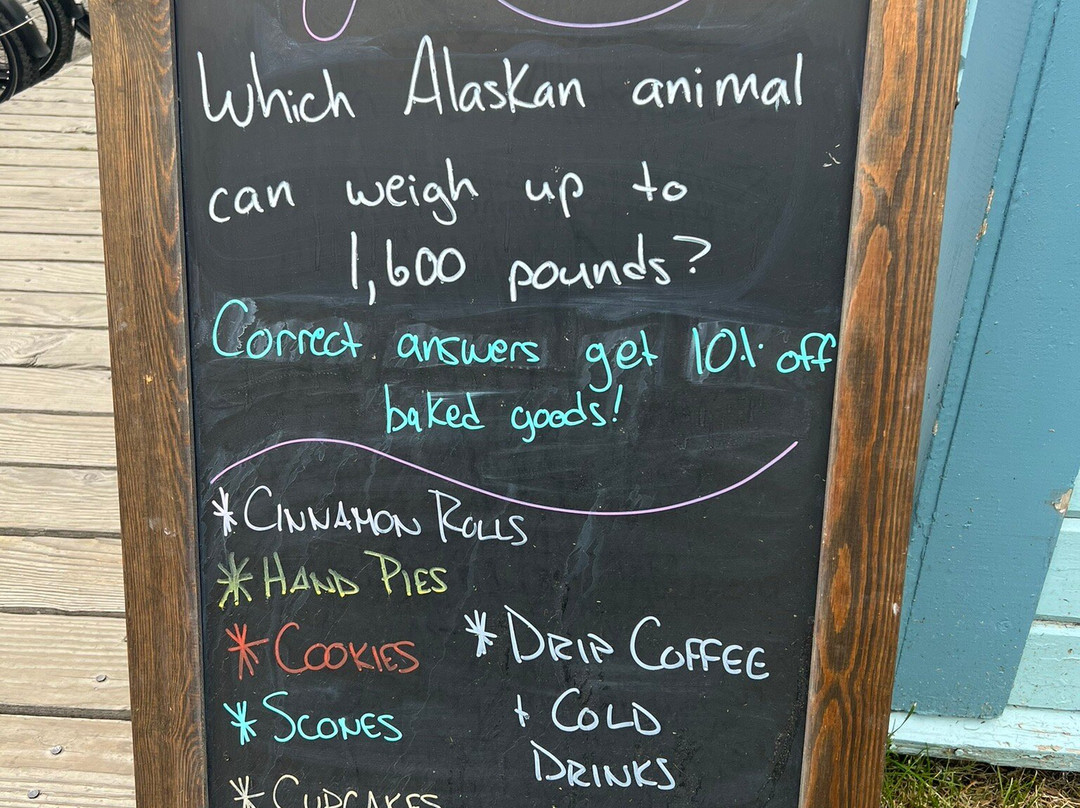 Which Alaskan animal
can weigh up to
1,600 pounds?
Correct answers get 10% off
baked goods!
* CINNAMON ROLLS
* HAND PIES
* COOKIES
* SCONES
* CUPCAKES
* DRIP COFFEE
+ COLD
DRINKS